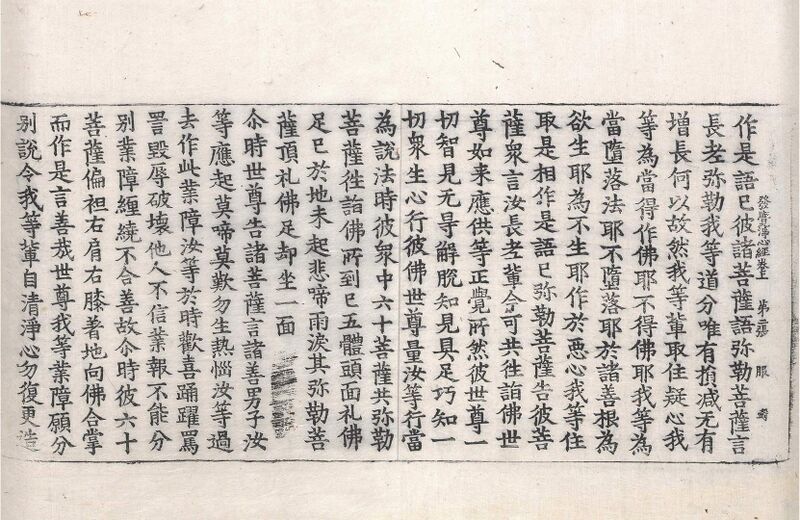 發覺淨心經卷上 第二張 眼
作是語已彼諸菩薩語弥勒菩薩言
長老弥勒我等道分唯有損減无有
增長何以故然我等輩取住疑心我
等為當得作佛耶不得佛耶我等為
當墮落法耶不墮落耶於諸善根為
欲生耶為不生耶作於惡心我等住
取是相作是語已弥勒菩薩告彼菩
薩衆言汝長老輩今可共徃詣佛世
尊如来應供等正覺所然彼世尊一
切智見无㝵解脫知見具足巧知一
切衆生心行彼佛世尊量汝等行當
為說法時彼衆中六十菩薩共弥勒
菩薩徃詣佛所到已五體頭面礼佛
足已於地未起悲啼雨淚其弥勒菩
薩頂礼佛足却坐一面
尒時世尊告諸菩薩言諸善男子汝
等應起莫啼莫歎勿生熱惱汝等過
去作此業障汝等於時歡喜踊躍罵
詈毀辱破壞他人不信業報不能分
別業障纏繞不合善故尒時彼六十
菩薩偏袒右肩右膝著地向佛合掌
而作是言善哉世尊我等業障願分
別說令我等輩自清淨心勿復更造